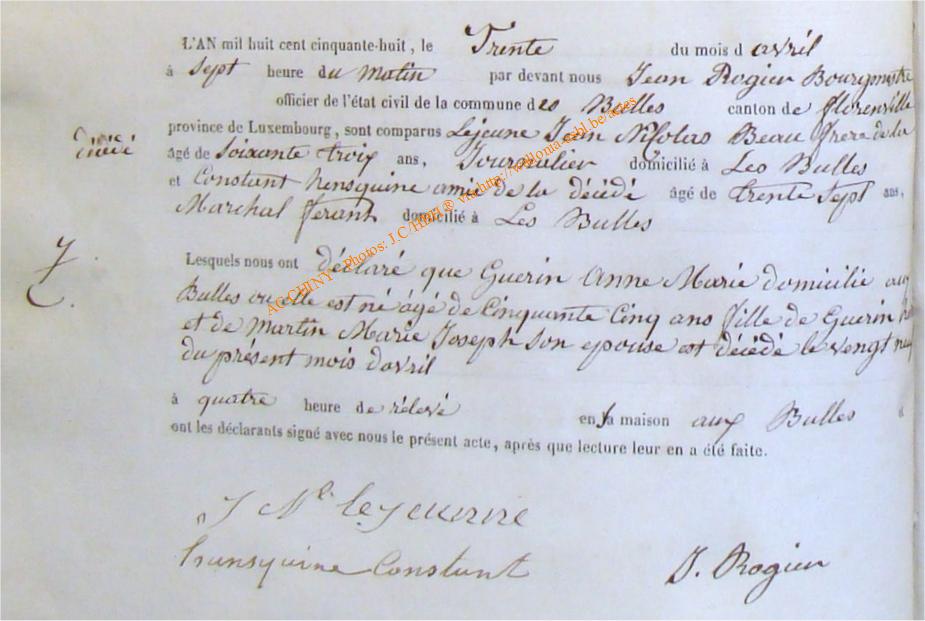 L'AN mil huit cent cinquante-huit, le Trente du mois d avril
à Sept heure du Matin par devant nous Jean Rogier Bourgmstre
officier de l'état civil de la commune des Bulles canton de florenville
province de Luxembourg, sont comparus Lejeune Jean Nicolas Beau frere de la
décédé
âgé de Soixante trois ans, Journalier domicilié à Les Bulles
et Constant hensquine amie de la décédé âgé de trente Sept ans,
Marchal ferant domicilié à Les Bulles
Lesquels nous ont déclaré que Guerin Anne Marie domicilie aux
Bulles ou elle est né âgé de Cinquante Cinq ans fille de Guerin
et de Martin Marie Joseph Son epouse est décédé le vengt
du présent mois d'avril
à quatre heure de rélevé en sa maison aux Bulles
ont les déclarants signé avec nous le présent acte, après que lecture leur en a été faite.
J Nles lejeunne
hunsquine Constant J. Rogier
AC CHINY - Photos: J.C/HHH® via http://wallonia-asbl.be/actes